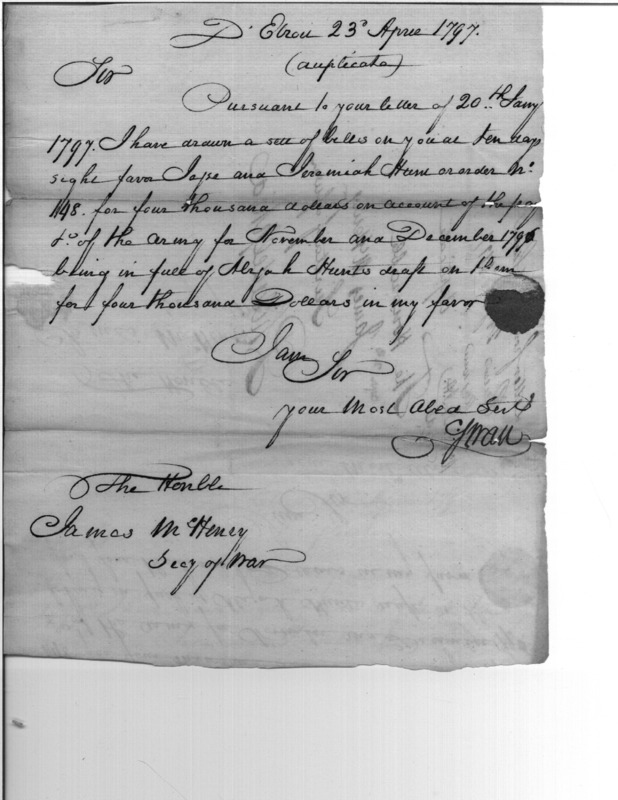 D'Etroit 23d April 1797.
(duplicate)
Sir
Pursuant to your letter of 20.th Jany
1797. I have drawn a sett of bills on you at ten days
sight favor Jesse and Jeremiah Hunt or order No.
148. for four thousand dollars on account of the pay
&c. of the army for November and December 1796
being in full of Abijah Hunts draft on
for four thousand Dollars in my favor
I am Sir
your Most Obed Servt
The Honble
James McHenry
Secy of War